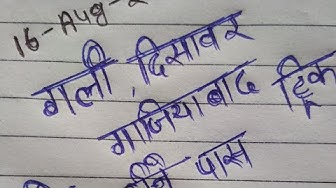 16-Aug-
गली, दिसावर
गाजियाबाद ट्रिक
पास